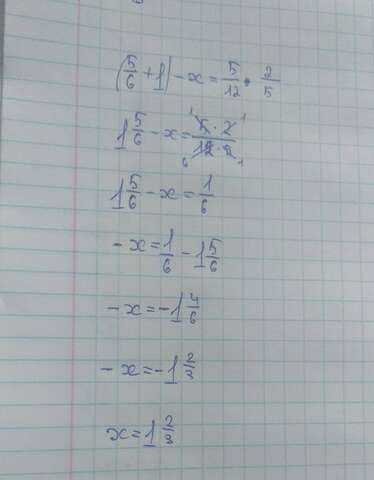 (5/6 + 1) - x = 5/12 · 2/5
1 5/6 - x = 5 · 2 / 12 · 5
1 5/6 - x = 1/6
- x = 1/6 - 1 5/6
- x = - 1 4/6
- x = - 1 2/3
x = 1 2/3